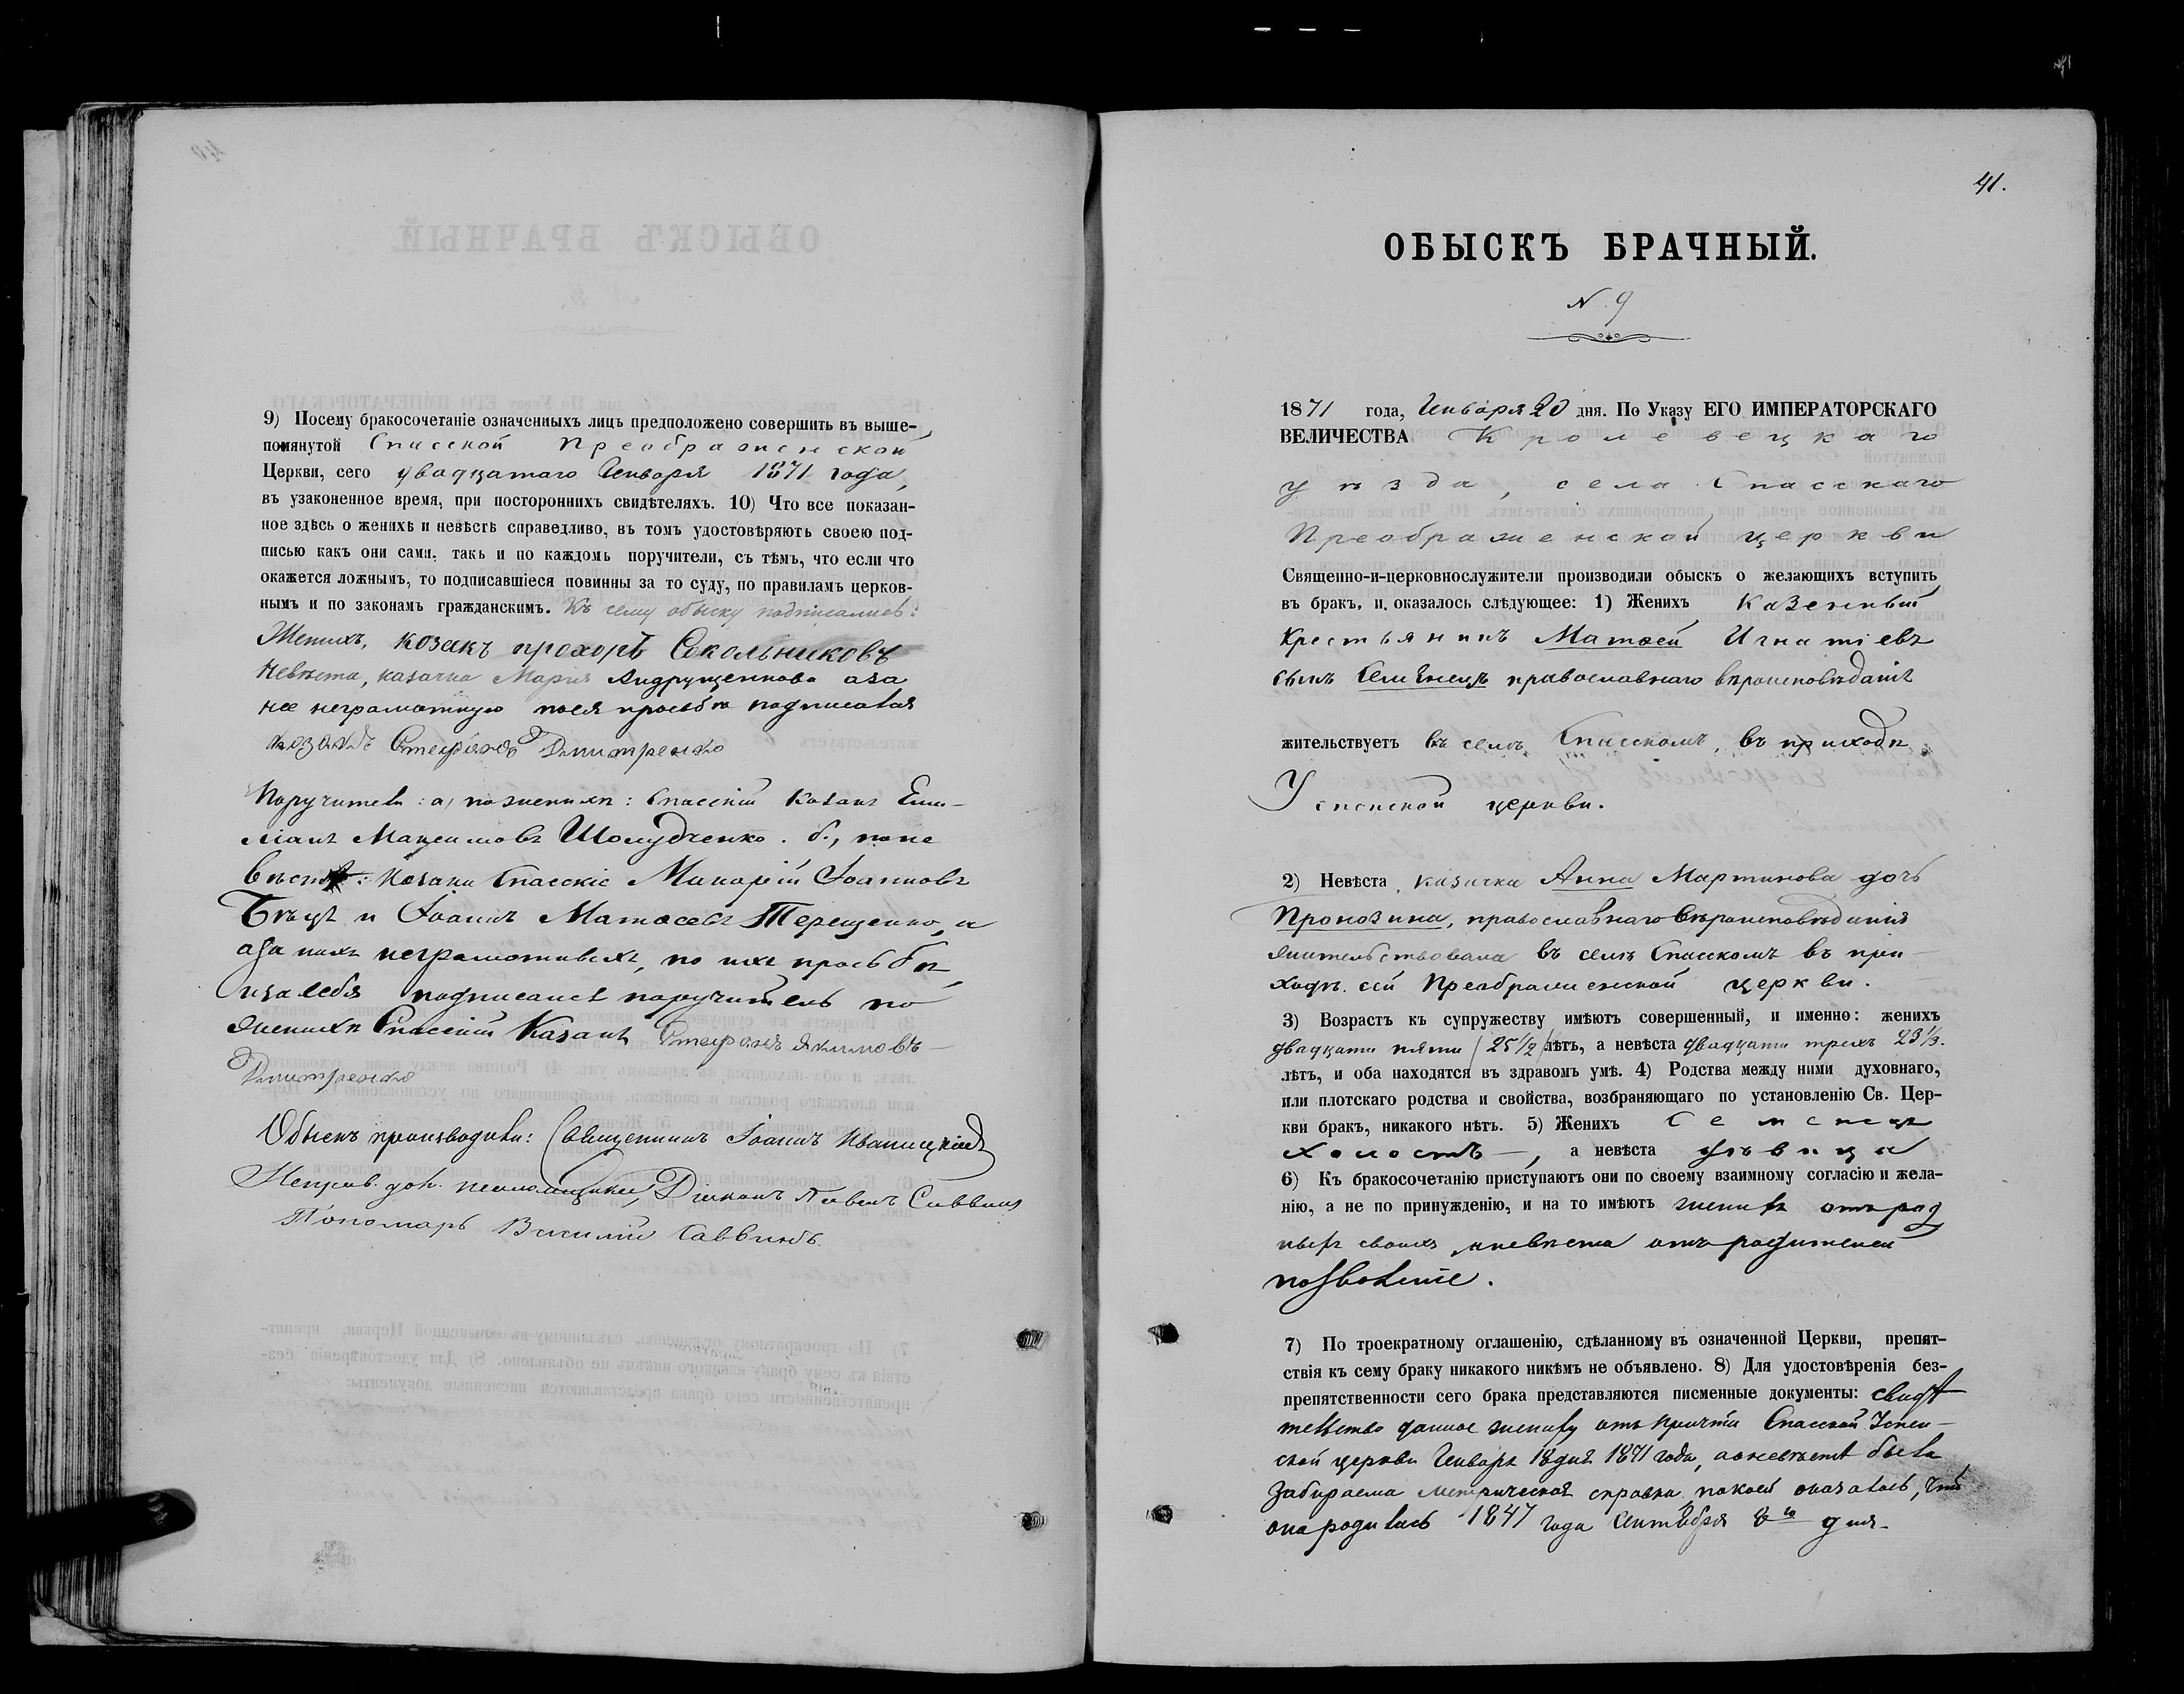 9) Посему бракосочетаніе означенныхъ лицъ предположено совершить въ выше-
помянутой Спасской Преображенской
Церкви, сего двадцатаго Января 1871 года,
въ узаконенное время, при постороннихъ свидѣтеляхъ. 10) Что все показан-
ное здѣсь о женихѣ и невѣстѣ справедливо, въ томъ удостовѣряютъ своею под-
писью какъ они сами, такъ и по каждомъ поручители, съ тѣмъ, что если что
окажется ложнымъ, то подписавшіеся повинны за то суду, по правиламъ церков-
нымъ и по законамъ гражданскимъ. Къ сему обыску подписались:
Женихъ, козакъ прохоръ Сокольниковъ
Невѣста, казачка Марія Андрущенкова аза
нее неграмотную поея прозбѣ подписался
козакъ Стефанъ Дмитренко
Поручители: а, поженихѣ: Спасскій Казакъ Еми-
ліанъ Максимовъ Шолудченко. б., поне
вѣстѣ: Козаки Спасскіе Макарій Іоанновъ
Бѣцъ и Іоаннъ Матѳеевъ Терещенко, а
аза нихъ неграмотныхъ, по ихъ прозьбѣ
иза себя подписался поручитель по
женихѣ Спасскій Казакъ Стефанъ Якимовъ
Дмитренко
Обыскъ производили: Священникъ Іоаннъ
Исправ. дол. псаломщика, Діаконъ Павелъ Саввинъ
Пономарь Василій Саввинъ.
41.
ОБЫСКЪ БРАЧНЫЙ.
N. 9
1871 года, Января 20 дня. По Указу ЕГО ИМПЕРАТОРСКАГО
ВЕЛИЧЕСТВА Кролевецкаго
уѣзда, села Спасскаго
Преображенской церкви
Священно-и-церковнослужители производили обыскъ о желающихъ вступить
въ бракъ, и оказалось слѣдующее: 1) Женихъ Казенный
Крестьянинъ Матѳей Игнатіевъ
сынъ Семѣнецъ православнаго вѣроисповѣданія
жительствуетъ въ селѣ Спасскомъ, въ приходѣ
Успенской церкви.
2) Невѣста казачка Анна Мартинова дочь
Пронозина, православнаго вѣроисповѣданія
жительствовала въ селѣ Спасскомъ въ при-
ходѣ сей Преображенской церкви.
3) Возрастъ къ супружеству имѣютъ совершенный, и именно: женихъ
двадцати пяти (25 1/2) лѣтъ, а невѣста двадцати трехъ 23 1/3.
лѣтъ, и оба находятся въ здравомъ умѣ. 4) Родства между ними духовнаго,
или плотскаго родства и свойства, возбраняющаго по установленію Св. Цер-
кви бракъ, никакого нѣтъ. 5) Женихъ Семенецъ
холостъ—, а невѣста дѣвица
6) Къ бракосочетанію приступаютъ они по своему взаимному согласію и жела-
нію, а не по принужденію, и на то имѣютъ женихъ отъ род
ныхъ своихъ, иневѣста отъ родителей
позволеніе.
7) По троекратному оглашенію, сдѣланному въ означенной Церкви, препят-
ствія къ сему браку никакого никѣмъ не объявлено. 8) Для удостовѣренія без-
препятственности сего брака представляются писменные документы: свидѣ
тельство данное жениху отъ причта Спасской Успен-
ской церкви Января 18 дня 1871 года, аоневѣстѣ была
забираема метрическая справка, покоей оказалось, что
она родилась 1847 года Сентября 8го дня.